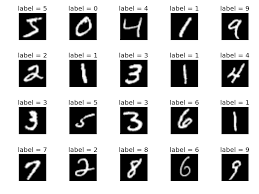 label = 5 label = 0 label = 4 label = 1 label = 9
5 0 4 1 9
label = 2 label = 1 label = 3 label = 1 label = 4
2 1 3 1 4
label = 3 label = 5 label = 3 label = 6 label = 1
3 5 3 6 1
label = 7 label = 2 label = 8 label = 6 label = 9
7 2 8 6 9